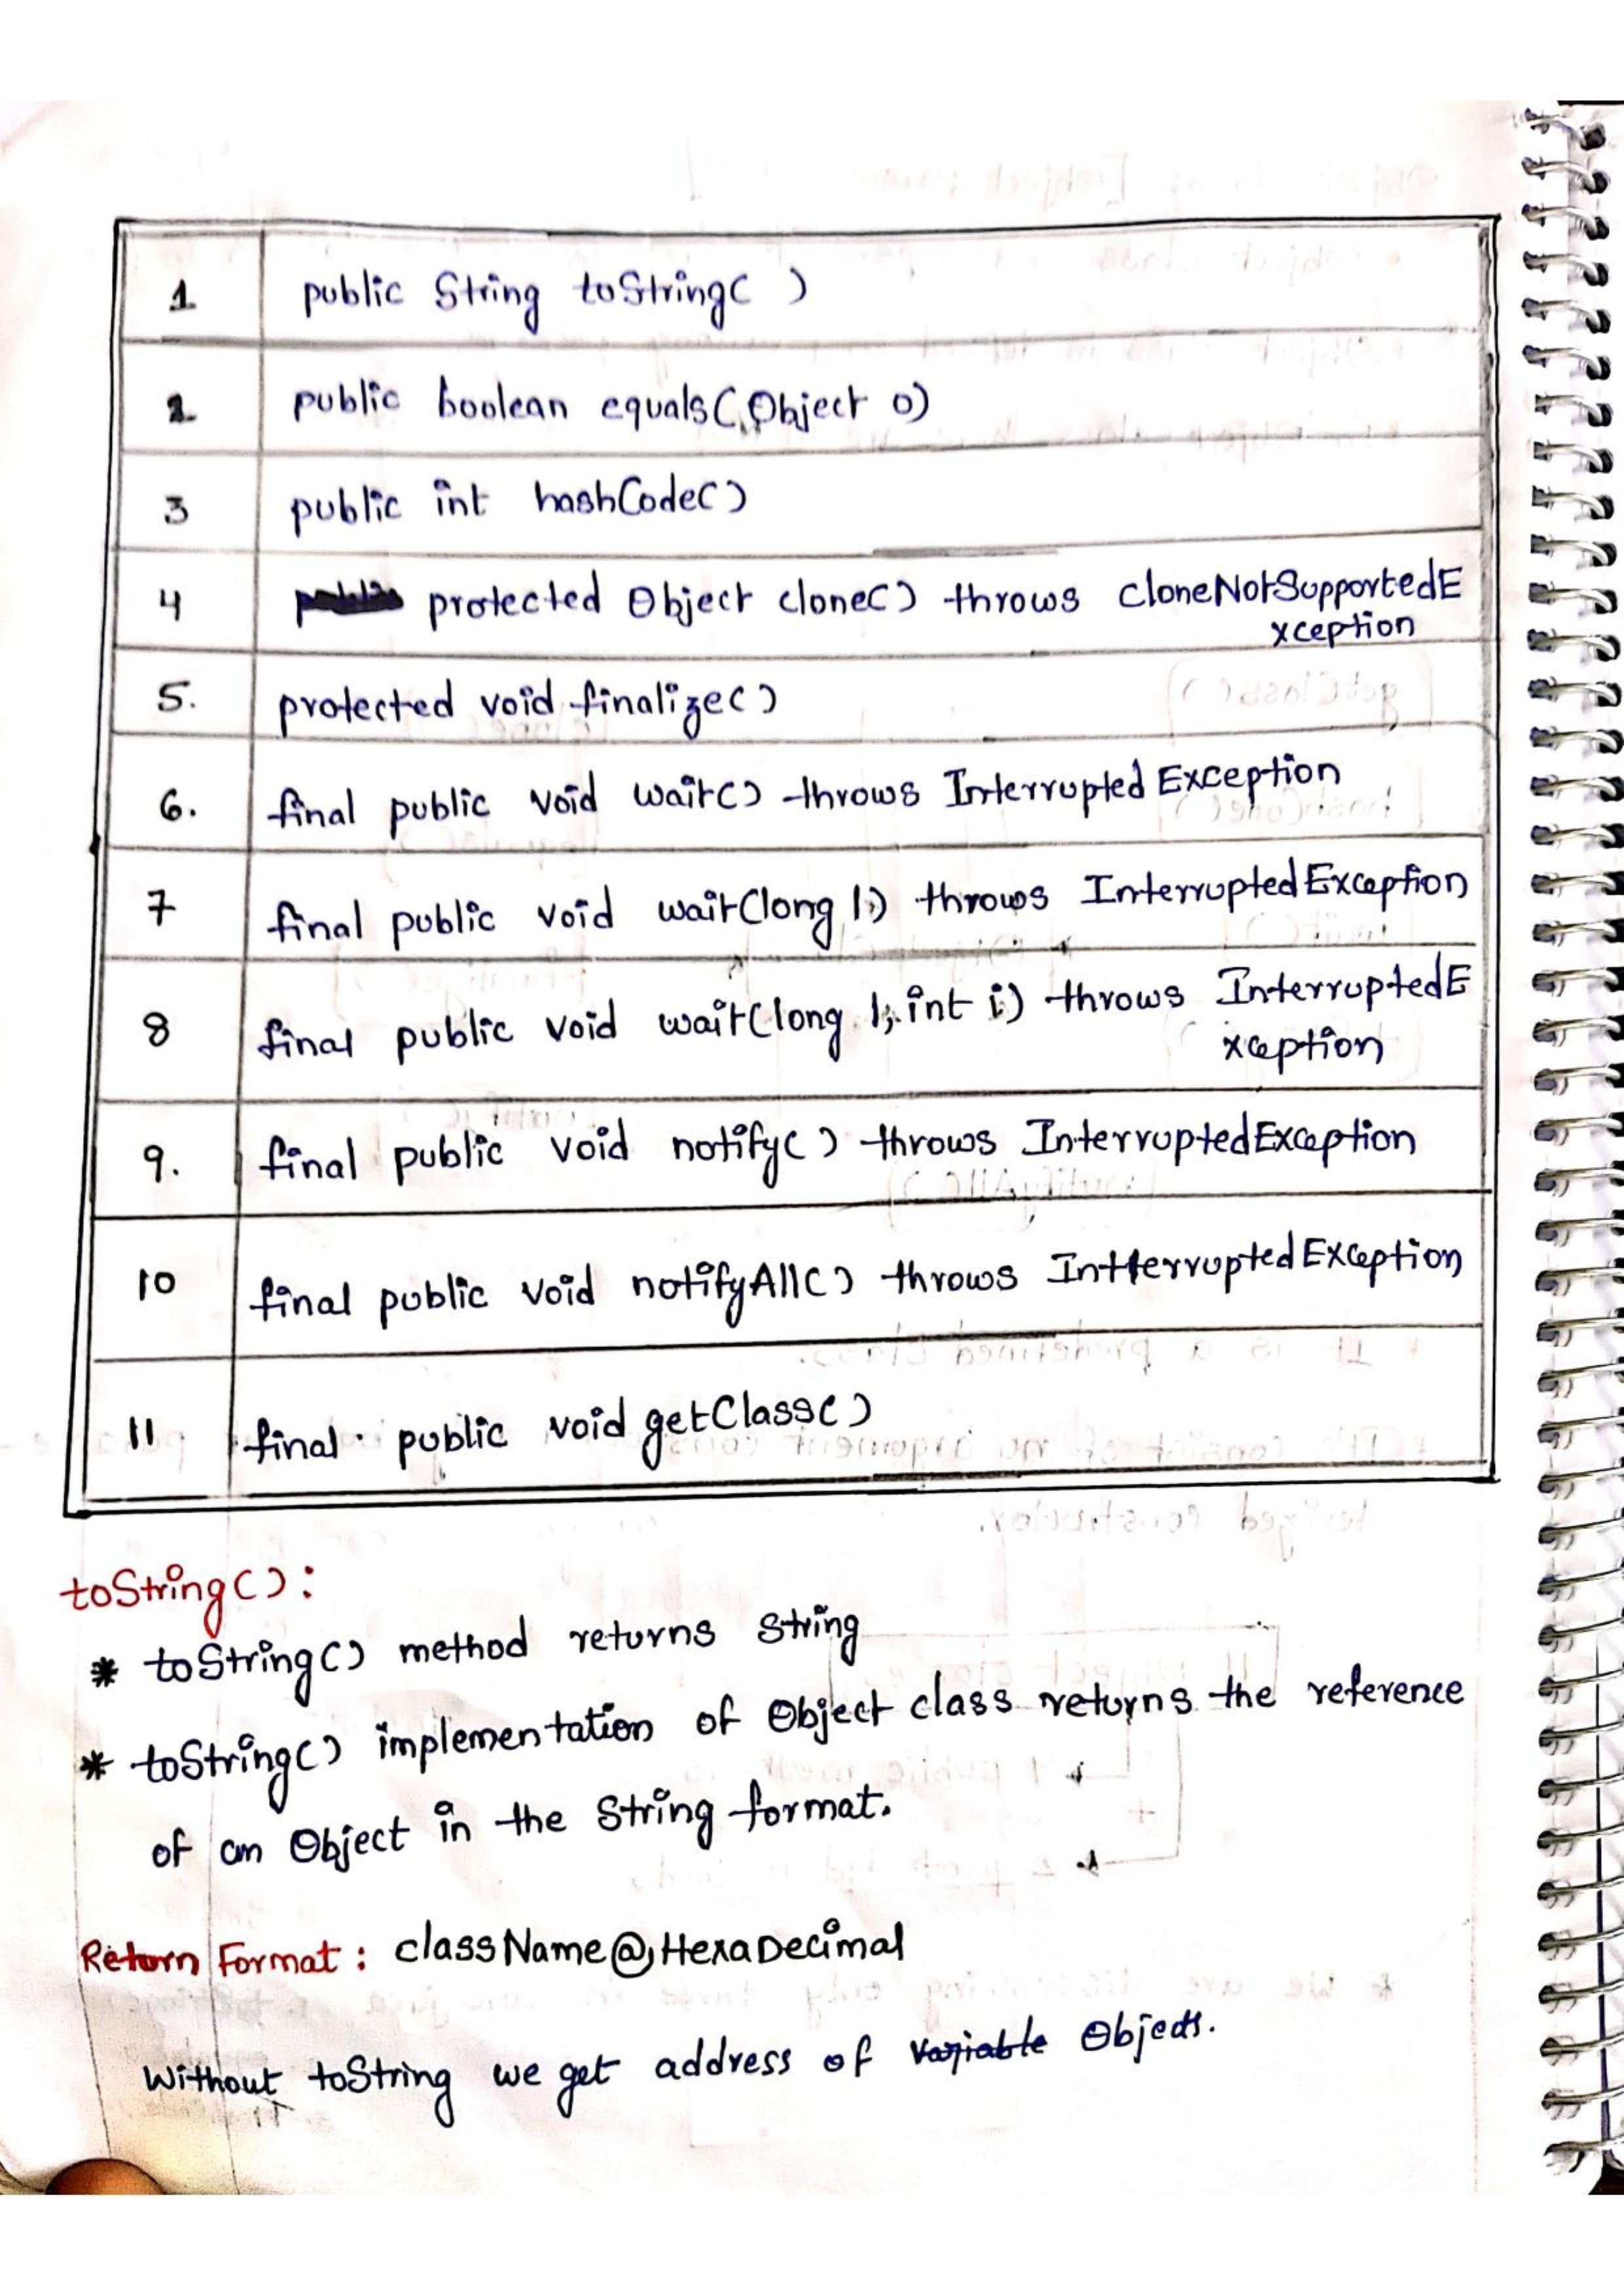 1 public String toString( )
2 public boolean equals(Object o)
3 public int hashCode()
4 protected Object clone() throws cloneNotSupportedE
xception
5. protected void finalize()
6. final public void wait() throws Interrupted Exception
7 final public void wait(long l) throws Interrupted Exception
8 final public void wait(long l, int i) throws InterruptedE
xception
9. final public void notify() throws InterruptedException
10 final public void notifyAll() throws Intterrupted Exception
11 final public void getClass()
toString():
* toString() method returns string
* toString() implementation of Object class returns the reference
of an Object in the String format.
Return Format : className@HexaDecimal
Without toString we get address of variable Objects.